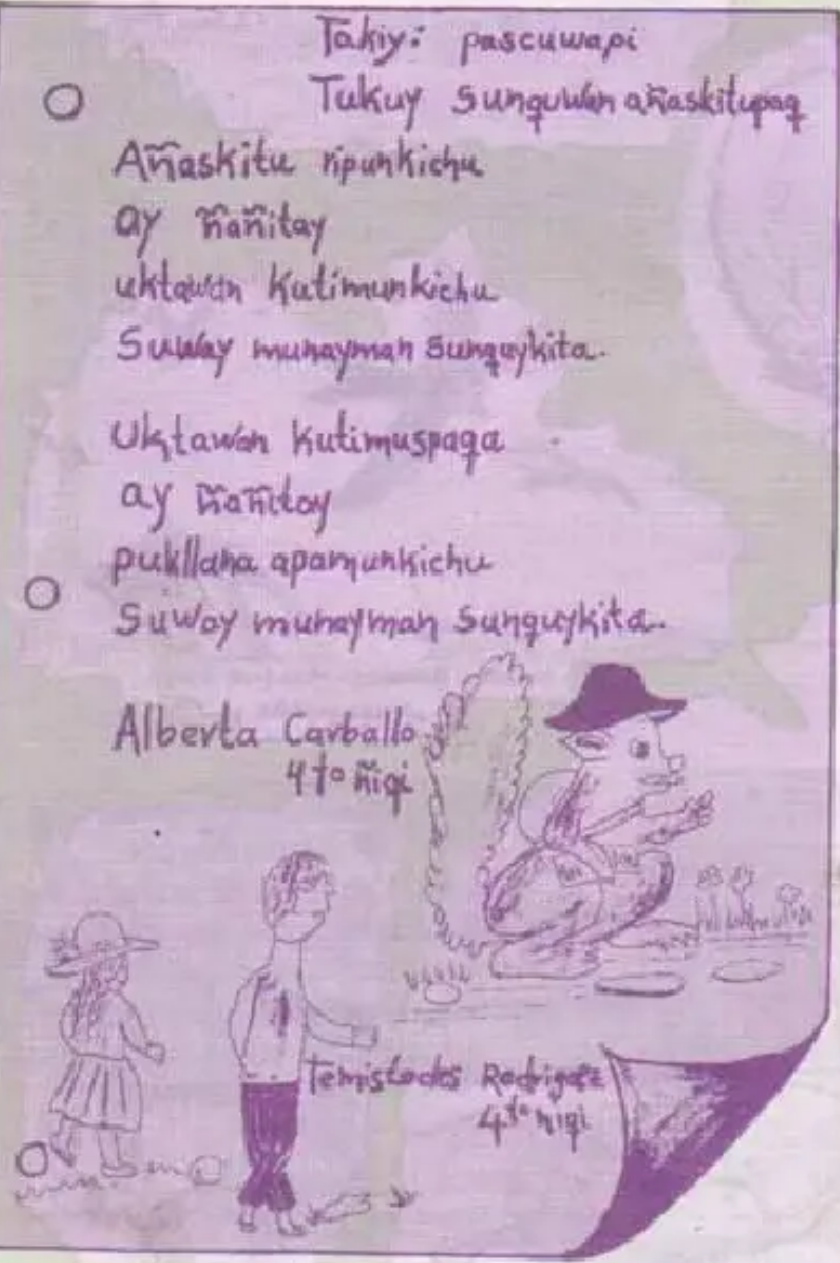 Takiy: pascuwapi
Tukuy sunquwan añaskitupaq
Añaskitu ripunkichu
ay ñañitay
uktawan kutimunkichu
Suway munayman sunquykita.
Uktawan kutimuspaqa
ay ñañitay
pukllana apamunkichu
Suway munayman sunquykita.
Alberta Carballo
4to ñiqi
Temistocles Rodriguez
4to ñiqi